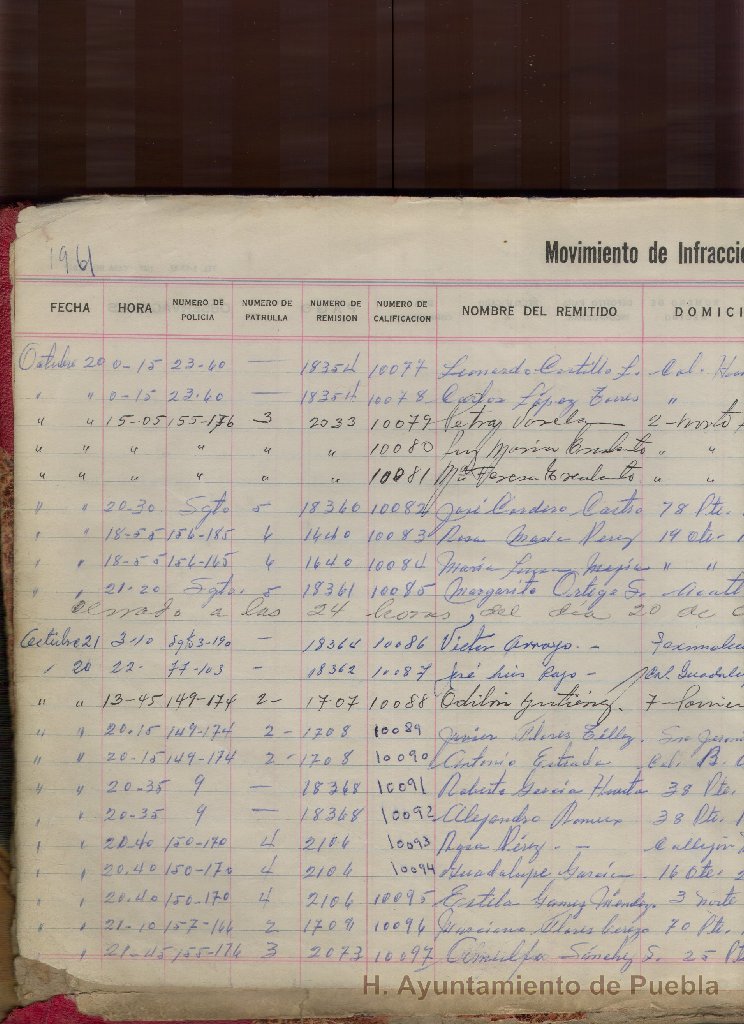 1961
Movimiento de Infracci
FECHA HORA NUMERO DE POLICIA NUMERO DE PATRULLA NUMERO DE REMISION NUMERO DE CALIFICACION NOMBRE DEL REMITIDO DOMICI
Octubre 20 0-15 23-60 — 18354 10077 Leonardo Castillo L. Col.
" " 0-15 23-60 — 18354 10078 Carlos López Torres "
" " 15-05 155-176 3 2033 10079 2-Norte
" " " " " " 10080 Luz María " "
" " " " " " 10081 Ma Teresa " "
" " 20-30 Sgto 5 18360 10082 José Cordero Castro 78 Pte.
" " 18-55 156-185 6 1640 10083 Rosa María Perez 19 Ote.
" " 18-55 156-165 6 1640 10084 María Mejía " "
" " 21-20 Sgto. 5 18361 10085 Margarito Ortega S.
Cerrado a las 24 horas, del día 20 de O
Octubre 21 3-10 Sgto 3-190 — 18364 10086 Victor Arroyo. -
" 20 22- 77-103 - 18362 10087 José Luis Col. Guadalu
" " 13-45 149-174 2- 1707 10088 Odilón Gutiérrez. 7-
" " 20.15 149-174 2- 1708 10089 Javier Flores Téllez. San
" " 20-15 149-174 2- 1708 10090 Antonio Estrada Col. B.
" " 20-35 9 — 18368 10091 Roberto García Huerta 38 Pte.
" " 20-35 9 — 18368 10092 Alejandro 38 Pte.
" " 20.40 150-170 4 2106 10093 Rosa Pérez. - - Callejón
" " 20.40 150-170 4 2106 10094 Guadalupe García 16 Ote.
" " 20.40 150-170 4 2106 10095 Estela Gamez Méndez. 3 Norte
" " 21-10 157-166 2 1709 10096 Flores 70 Pte.
" " 21-45 155-176 3 2073 10097 Sánchez S. 25 Pt
H. Ayuntamiento de Puebla